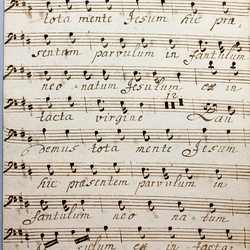 tota mente Jesum hic præ
sentem parvulum in fantulum
neo = natum Jesulum ex in
tacta virgine 12 Lau
demus tota mente Jesum
hic præsentem parvulum in
fantulum neo na = tum
sulum ex in tacta